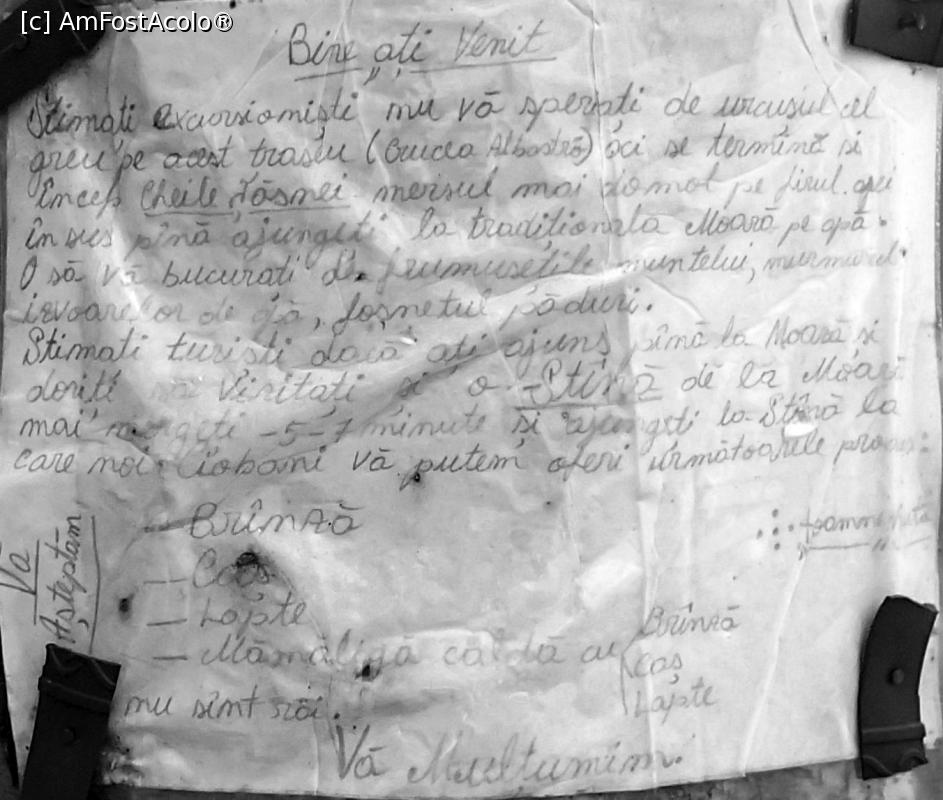 [c] AmFostAcolo®
Bine ați Venit
Stimați excursioniști nu vă speriați de urcușul cel
greu pe acest traseu (Crucea Albastră) aci se termină și
încep Cheile Tăsnei mersul mai domol pe firul apei
în sus pînă ajungeți la tradiționala Moară pe apă.
O să vă bucurați de frumusețile muntelui, murmurul
izvoarelor de apă, foșnetul păduri.
Stimați turiști dacă ați ajuns pînă la Moară și
doriți să Vizitați și o Stînă de la Moară
mai mergeți -5-7 minute și ajungeți la Stînă la
care noi Ciobani vă putem oferi următoarele produse:
- Brînză
- Caș
- Lapte
- Mămăligă caldă cu
Brînză
Caș
Lapte
nu sînt răi.
Vă Mulțumim.
Vă
Așteptăm